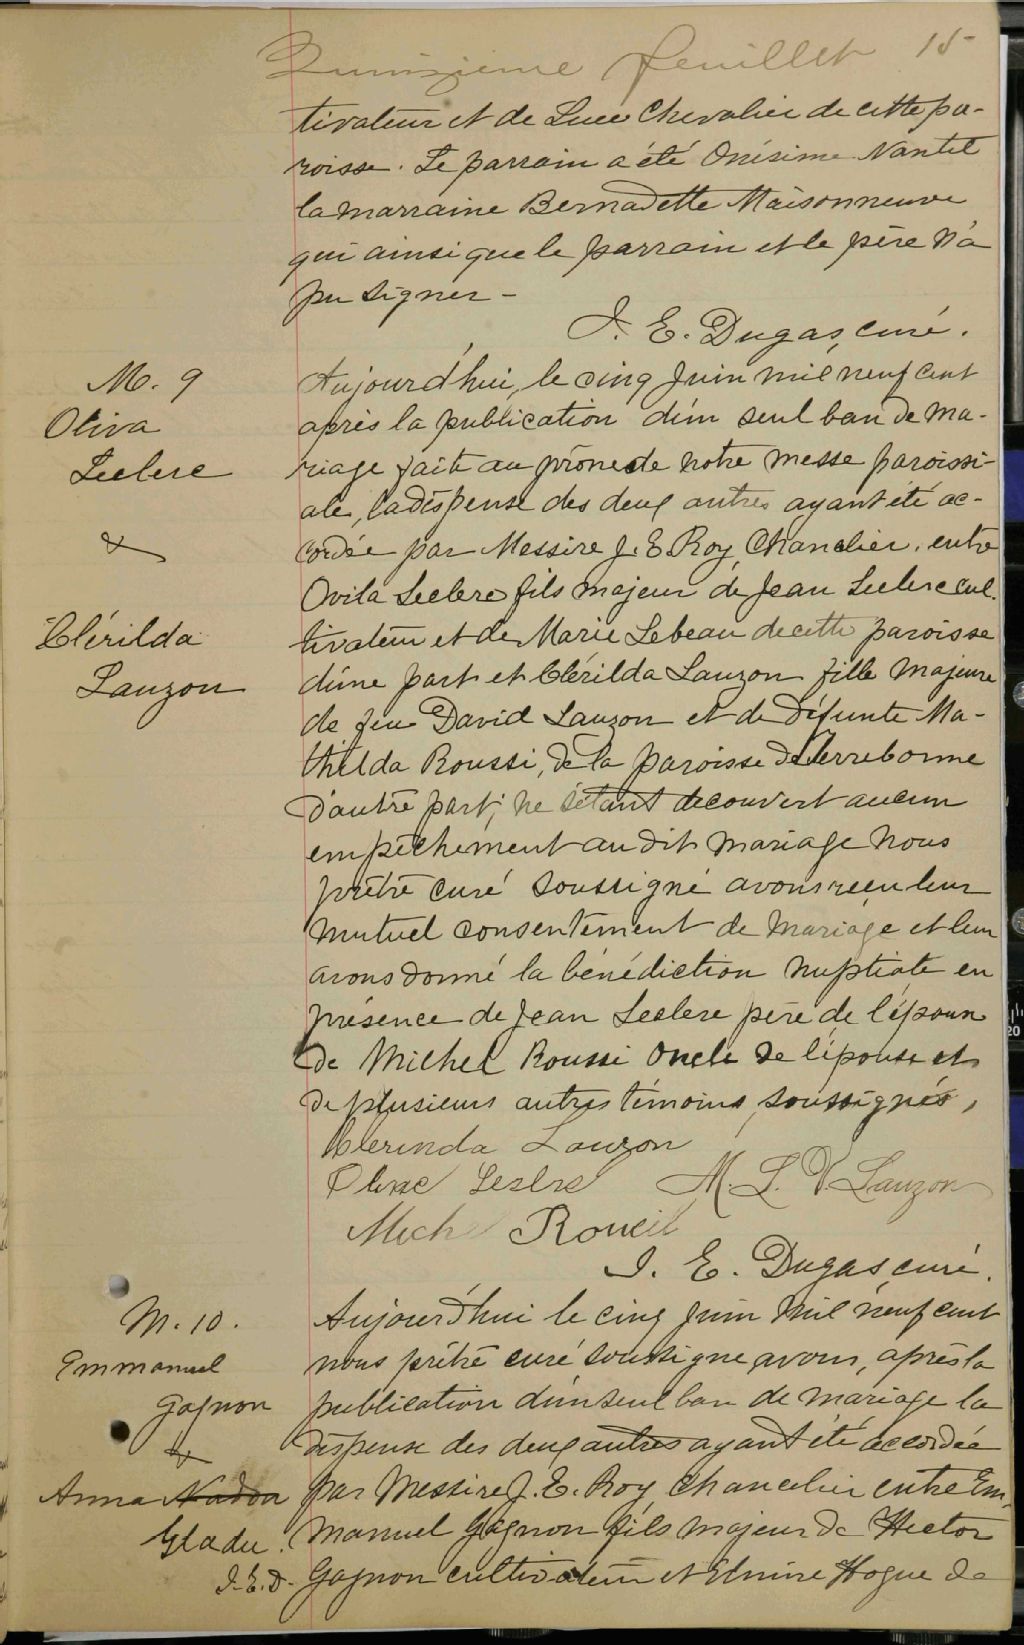 Quinzième feuillet 15
tivateur et de Luce Chevalier de cette pa-
roisse. Le parrain a été Onésime Nantel
la marraine Bernadette Maisonneuve
qui ainsi que le parrain et le père n'a
pu signer -
J. E. Dugas, curé.
M. 9
Oliva
Leclerc
&
Clérilda
Lauzon
Aujourd'hui, le cinq Juin mil neuf cent
après la publication d'un seul ban de ma-
riage faite au prône de notre messe paroissi-
ale, la dispense des deux autres ayant été ac-
cordée par Messire J. E Roy, Chancelier, entre
Ovila Leclerc fils majeur de Jean Leclerc cul-
tivateur et de Marie Lebeau de cette paroisse
d'une part et Clérilda Lauzon fille majeure
de feu David Lauzon et de défunte Ma-
thilda Roussi, de la paroisse de Terrebonne
d'autre part; ne s'étant decouvert aucun
empêchement au dit mariage Nous
prêtre curé soussigné avons reçu leur
mutuel consentement de mariage et leur
avons donné la bénédiction nuptiale en
présence de Jean Leclerc père de l'époux
de Michel Roussi Oncle de l'épouse et
de plusieurs autres témoins soussignés,
Clerinda Lauzon
Leclrc M. L. V. Lauzon
Mich Roueil
J. E. Dugas curé.
M. 10.
Emmanuel
Gagnon
&
Anna Nadon
Gladu.
J. E. D.
Aujourd'hui le cinq Juin Mil neuf cent
nous prêtre curé soussigne avons, après la
publication d'un seul ban de mariage la
dispense des deux autres ayant été accordée
par Messire J. E. Roy Chancelier entre Em-
manuel Gagnon fils majeur de Hector
Gagnon cultivateur et Elmire Hogue de